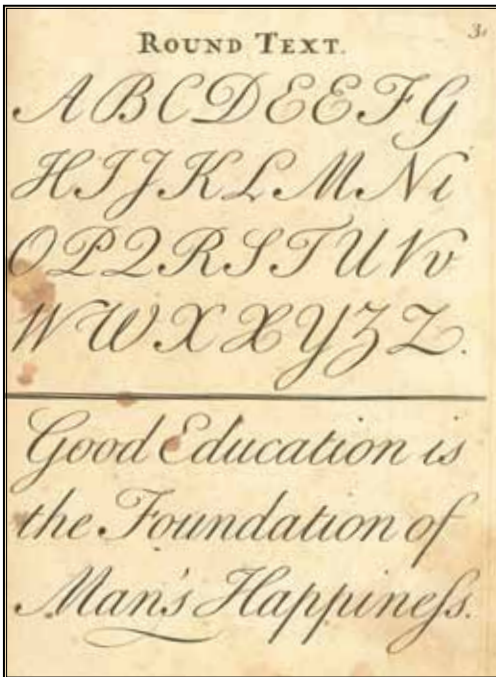 ROUND TEXT.
A B C D E E F G
H I J K L M N
O P Q R S T U V v
W W X X Y Z Z.
Good Education is
the Foundation of
Man's Happineſs.